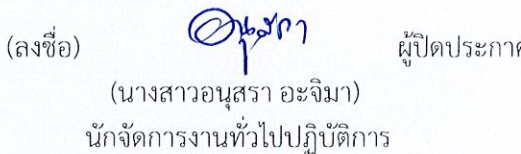 (ลงชื่อ) อนุสรา ผู้ปิดประกาศ
(นางสาวอนุสรา อะจิมา)
นักจัดการงานทั่วไปปฏิบัติการ